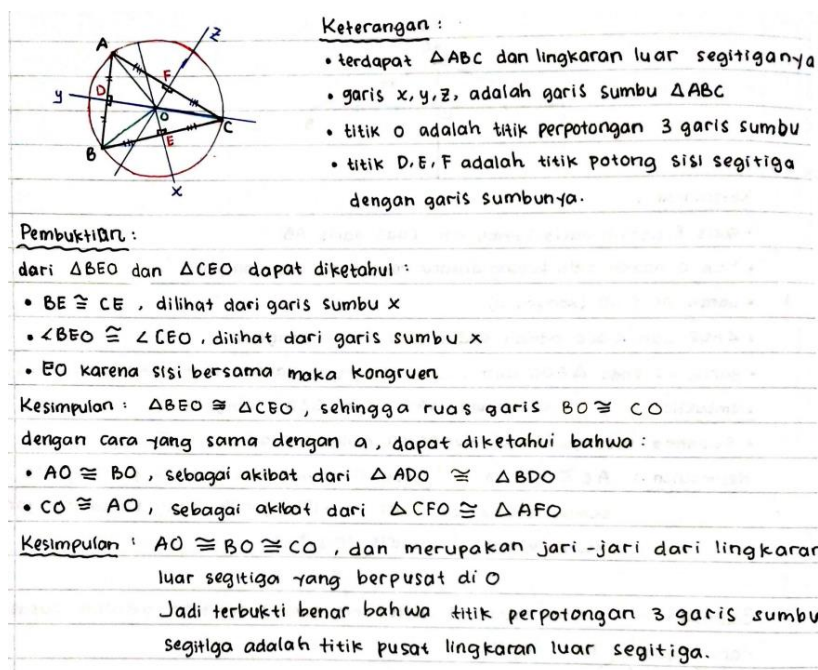 A
Z
D
F
y
O
C
B
E
x
Keterangan :
• terdapat △ABC dan lingkaran luar segitiganya
• garis x, y, z, adalah garis sumbu △ABC
• titik O adalah titik perpotongan 3 garis sumbu
• titik D, E, F adalah titik potong sisi segitiga
dengan garis sumbunya.
Pembuktian :
dari △BEO dan △CEO dapat diketahui :
• BE ≅ CE , dilihat dari garis sumbu x
• ∠BEO ≅ ∠CEO , dilihat dari garis sumbu x
• EO karena sisi bersama maka kongruen
Kesimpulan : △BEO ≅ △CEO , sehingga ruas garis BO ≅ CO
dengan cara yang sama dengan a, dapat diketahui bahwa :
• AO ≅ BO , sebagai akibat dari △ADO ≅ △BDO
• CO ≅ AO , sebagai akibat dari △CFO ≅ △AFO
Kesimpulan : AO ≅ BO ≅ CO , dan merupakan jari-jari dari lingkaran
luar segitiga yang berpusat di O
Jadi terbukti benar bahwa titik perpotongan 3 garis sumbu
segitiga adalah titik pusat lingkaran luar segitiga.